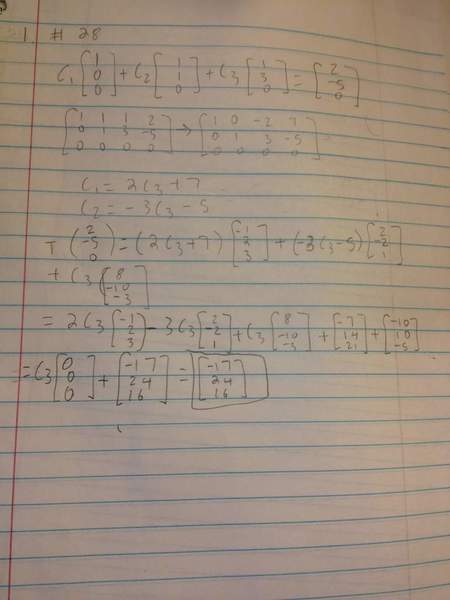 1. # 28
C₁ [1 0 0] + C₂ [1 1 0] + C₃ [1 3 0] = [2 -5 0]
[1 1 1 2; 0 1 3 -5; 0 0 0 0] → [1 0 -2 7; 0 1 3 -5; 0 0 0 0]
C₁ = 2C₃ + 7
C₂ = -3C₃ - 5
T (2 -5 0) = (2C₃+7) [-1 2 3] + (-3C₃-5) [2 -2 1]
+ C₃ [8 -10 -3]
= 2C₃ [-1 2 3] - 3C₃ [2 -2 1] + C₃ [8 -10 -3] + [-7 14 21] + [-10 10 -5]
= C₃ [0 0 0] + [-17 24 16] = [-17 24 16]